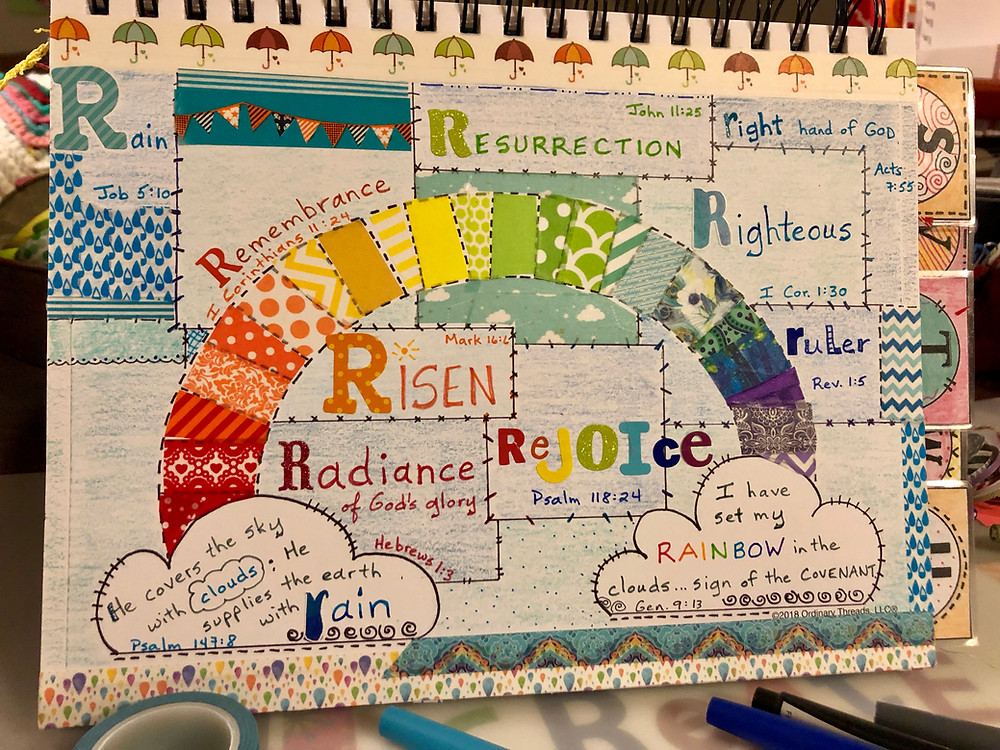 Rain
Job 5:10
RESURRECTION
John 11:25
right hand of GOD
Acts
7:55
Remembrance
I Corinthians 11:24
Righteous
I Cor. 1:30
RISEN
Mark 16:6
ruLer
Rev. 1:5
Radiance
of God's glory
Hebrews 1:3
ReJOIce
Psalm 118:24
He covers the sky
with clouds; He
supplies the earth
with rain
Psalm 147:8
I have
set my
RAINBOW in the
clouds... sign of the COVENANT.
Gen. 9:13
©2018 Ordinary Threads, LLC®
S
T